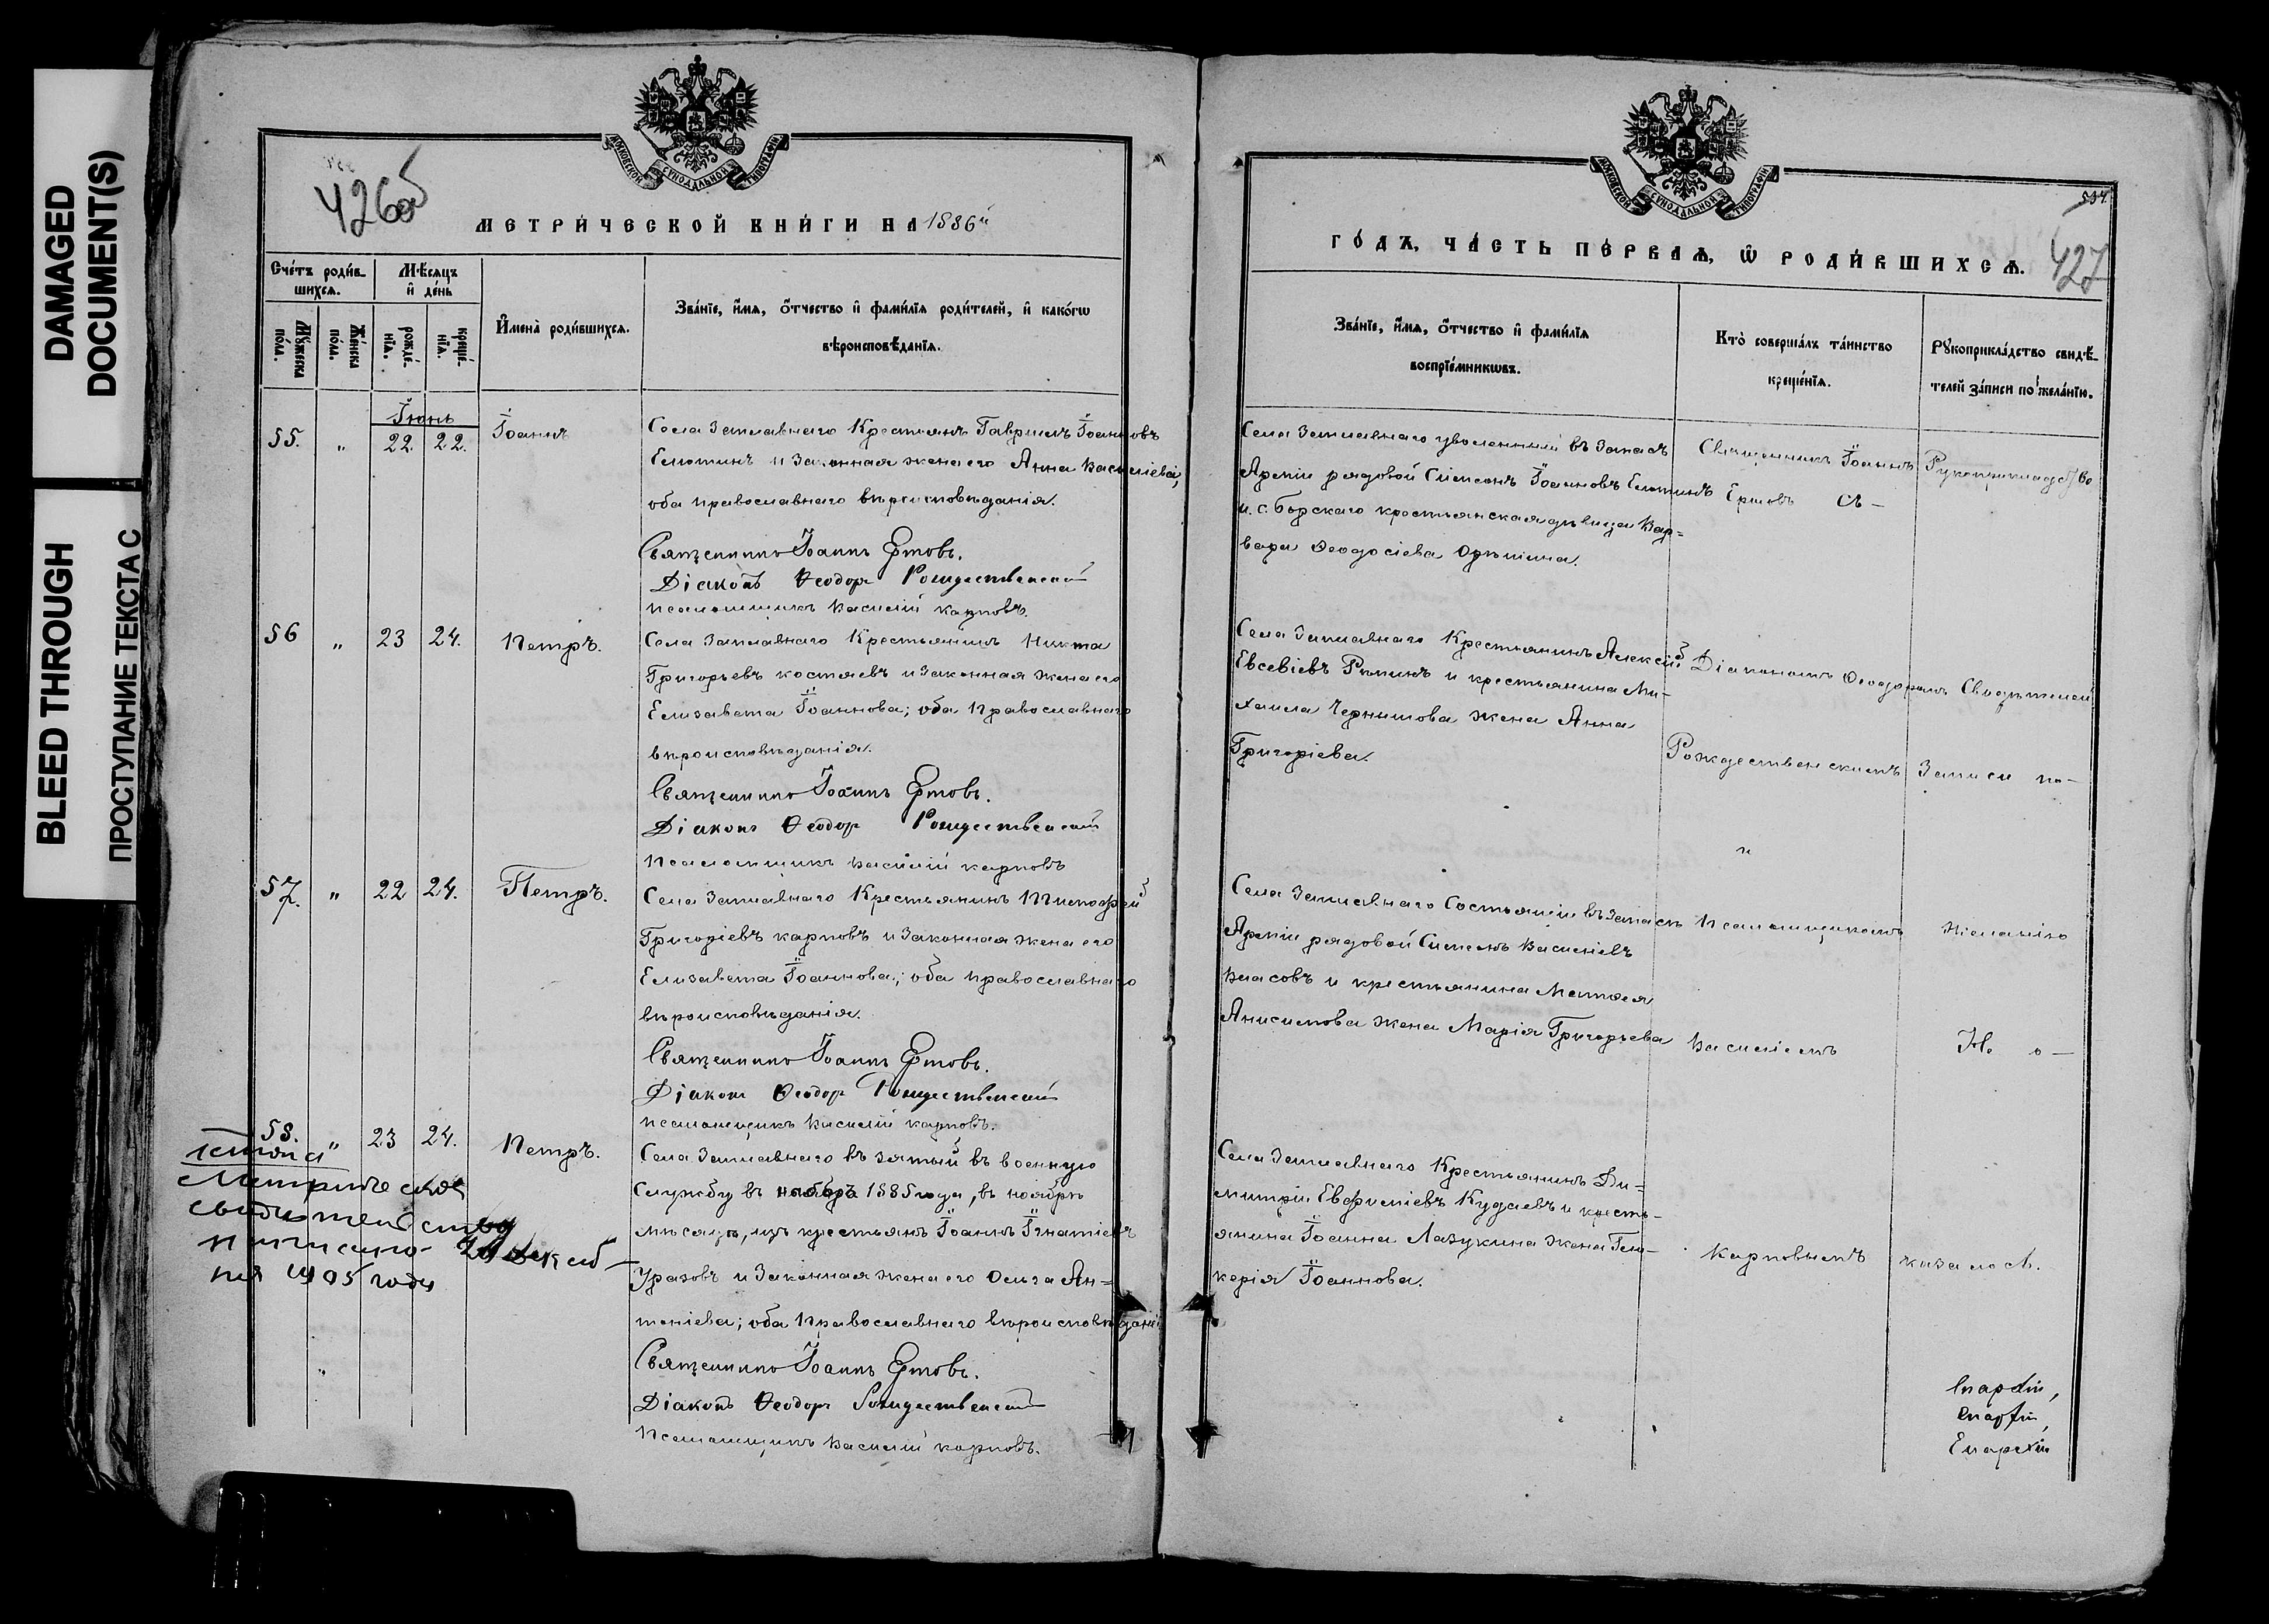 DAMAGED
DOCUMENT(S)
BLEED THROUGH
ПРОСТУПАНИЕ ТЕКСТА С
МОСКОВСКОЙ СѴНОДАЛЬНОЙ ТИПОГРАФІИ
426об
МЕТРИ́ЧЕСКОЙ КНИ́ГИ НА 1886й
Сче́тъ роди́в-
шихсѧ.
Мѣ́сѧцъ
и҆ де́нь
Мꙋ́жеска
по́ла.
Же́нска
по́ла.
рожде́-
нїѧ.
креще́-
нїѧ.
И҆мена̀ роди́вшихсѧ.
Зва́нїе, и҆́мѧ, ѻ҆́тчество и҆ фами́лїѧ роди́телей, и҆ како́гѡ
вѣроисповѣ́данїѧ.
Іюнь
55. „ 22. 22. Іоаннъ
Села Заплавнаго Крестьянъ Гавріилъ Іоанновъ
Елютинъ и законная жена его Анна Васильева;
оба православнаго вѣроисповѣданія.
Священникъ Іоаннъ Ершовъ.
Діаконъ Ѳеодоръ Рождественскій
Псаломщикъ Василій Карповъ.
56 „ 23 24. Петръ.
Села Заплавнаго Крестьянинъ Никита
Григорьевъ Костяевъ и законная жена его
Елизавета Іоаннова; оба Православнаго
вѣроисповѣданія.
Священникъ Іоаннъ Ершовъ.
Діаконъ Ѳеодоръ Рождественскій
Псаломщикъ Василій Карповъ
57. „ 22 24. Петръ.
Села Заплавнаго Крестьянинъ
Григоріевъ Карповъ и законная жена его
Елизавета Іоаннова; оба православнаго
вѣроисповѣданія.
Священникъ Іоаннъ Ершовъ.
Діаконъ Ѳеодоръ Рождественскій
Псаломщикъ Василій Карповъ.
58. „ 23 24. Петръ.
Села Заплавнаго взятый въ военную
службу въ 1885 года, въ ноябрѣ
мѣсяцѣ, изъ крестьянъ Іоаннъ Игнатіевъ
Уразовъ и законная жена его Ольга Ан=
тоніева; оба Православнаго вѣроисповѣданія
Священникъ Іоаннъ Ершовъ.
Діаконъ Ѳеодоръ Рождественскій
Псаломщикъ Василій Карповъ.
Метрическое
свидетельство
20 декаб-
ря 1905 года
МОСКОВСКОЙ СѴНОДАЛЬНОЙ ТИПОГРАФІИ
427
ГО́ДЪ, ЧА́СТЬ ПЕ́РВАѦ, Ѽ РОДИ́ВШИХСѦ.
Зва́нїе, и҆́мѧ, ѻ҆́тчество и҆ фами́лїѧ
воспрїе́мникѡвъ.
Кто̀ соверша́лъ та́инство
креще́нїѧ.
Рꙋкоприкла́дство свидѣ́-
телей за́писи по жела́нїю.
Села Заплавнаго уволенный въ запасъ
Арміи рядовой Симеонъ Іоанновъ Елютинъ
и с. Борскаго крестьянская дѣвица Вар=
вара Ѳеодосіева
Священникъ Іоаннъ
Ершовъ съ –
Рукоприкладство
Села Заплавнаго Крестьянинъ Алексій
Евсевіевъ и крестьянина Ми-
хаила Чернышова жена Анна
Григоріева.
Діакономъ Ѳеодоромъ
Рождественскимъ
Свидѣтелей
Записи по–
Села Заплавнаго Состоящій въ запасѣ
Арміи рядовой Симеонъ Василіевъ
Власовъ и крестьянина Матѳея
Анисимова жена Марія Григорьева
Псаломщикомъ
Василіемъ
желанію
Не о–
Села Заплавнаго Крестьянинъ Ди=
митрій Евфиміевъ Кудаевъ и кресть-
янина Іоанна Лазукина жена Гли-
керія Іоаннова.
Карповымъ
казалось.
Епархіи